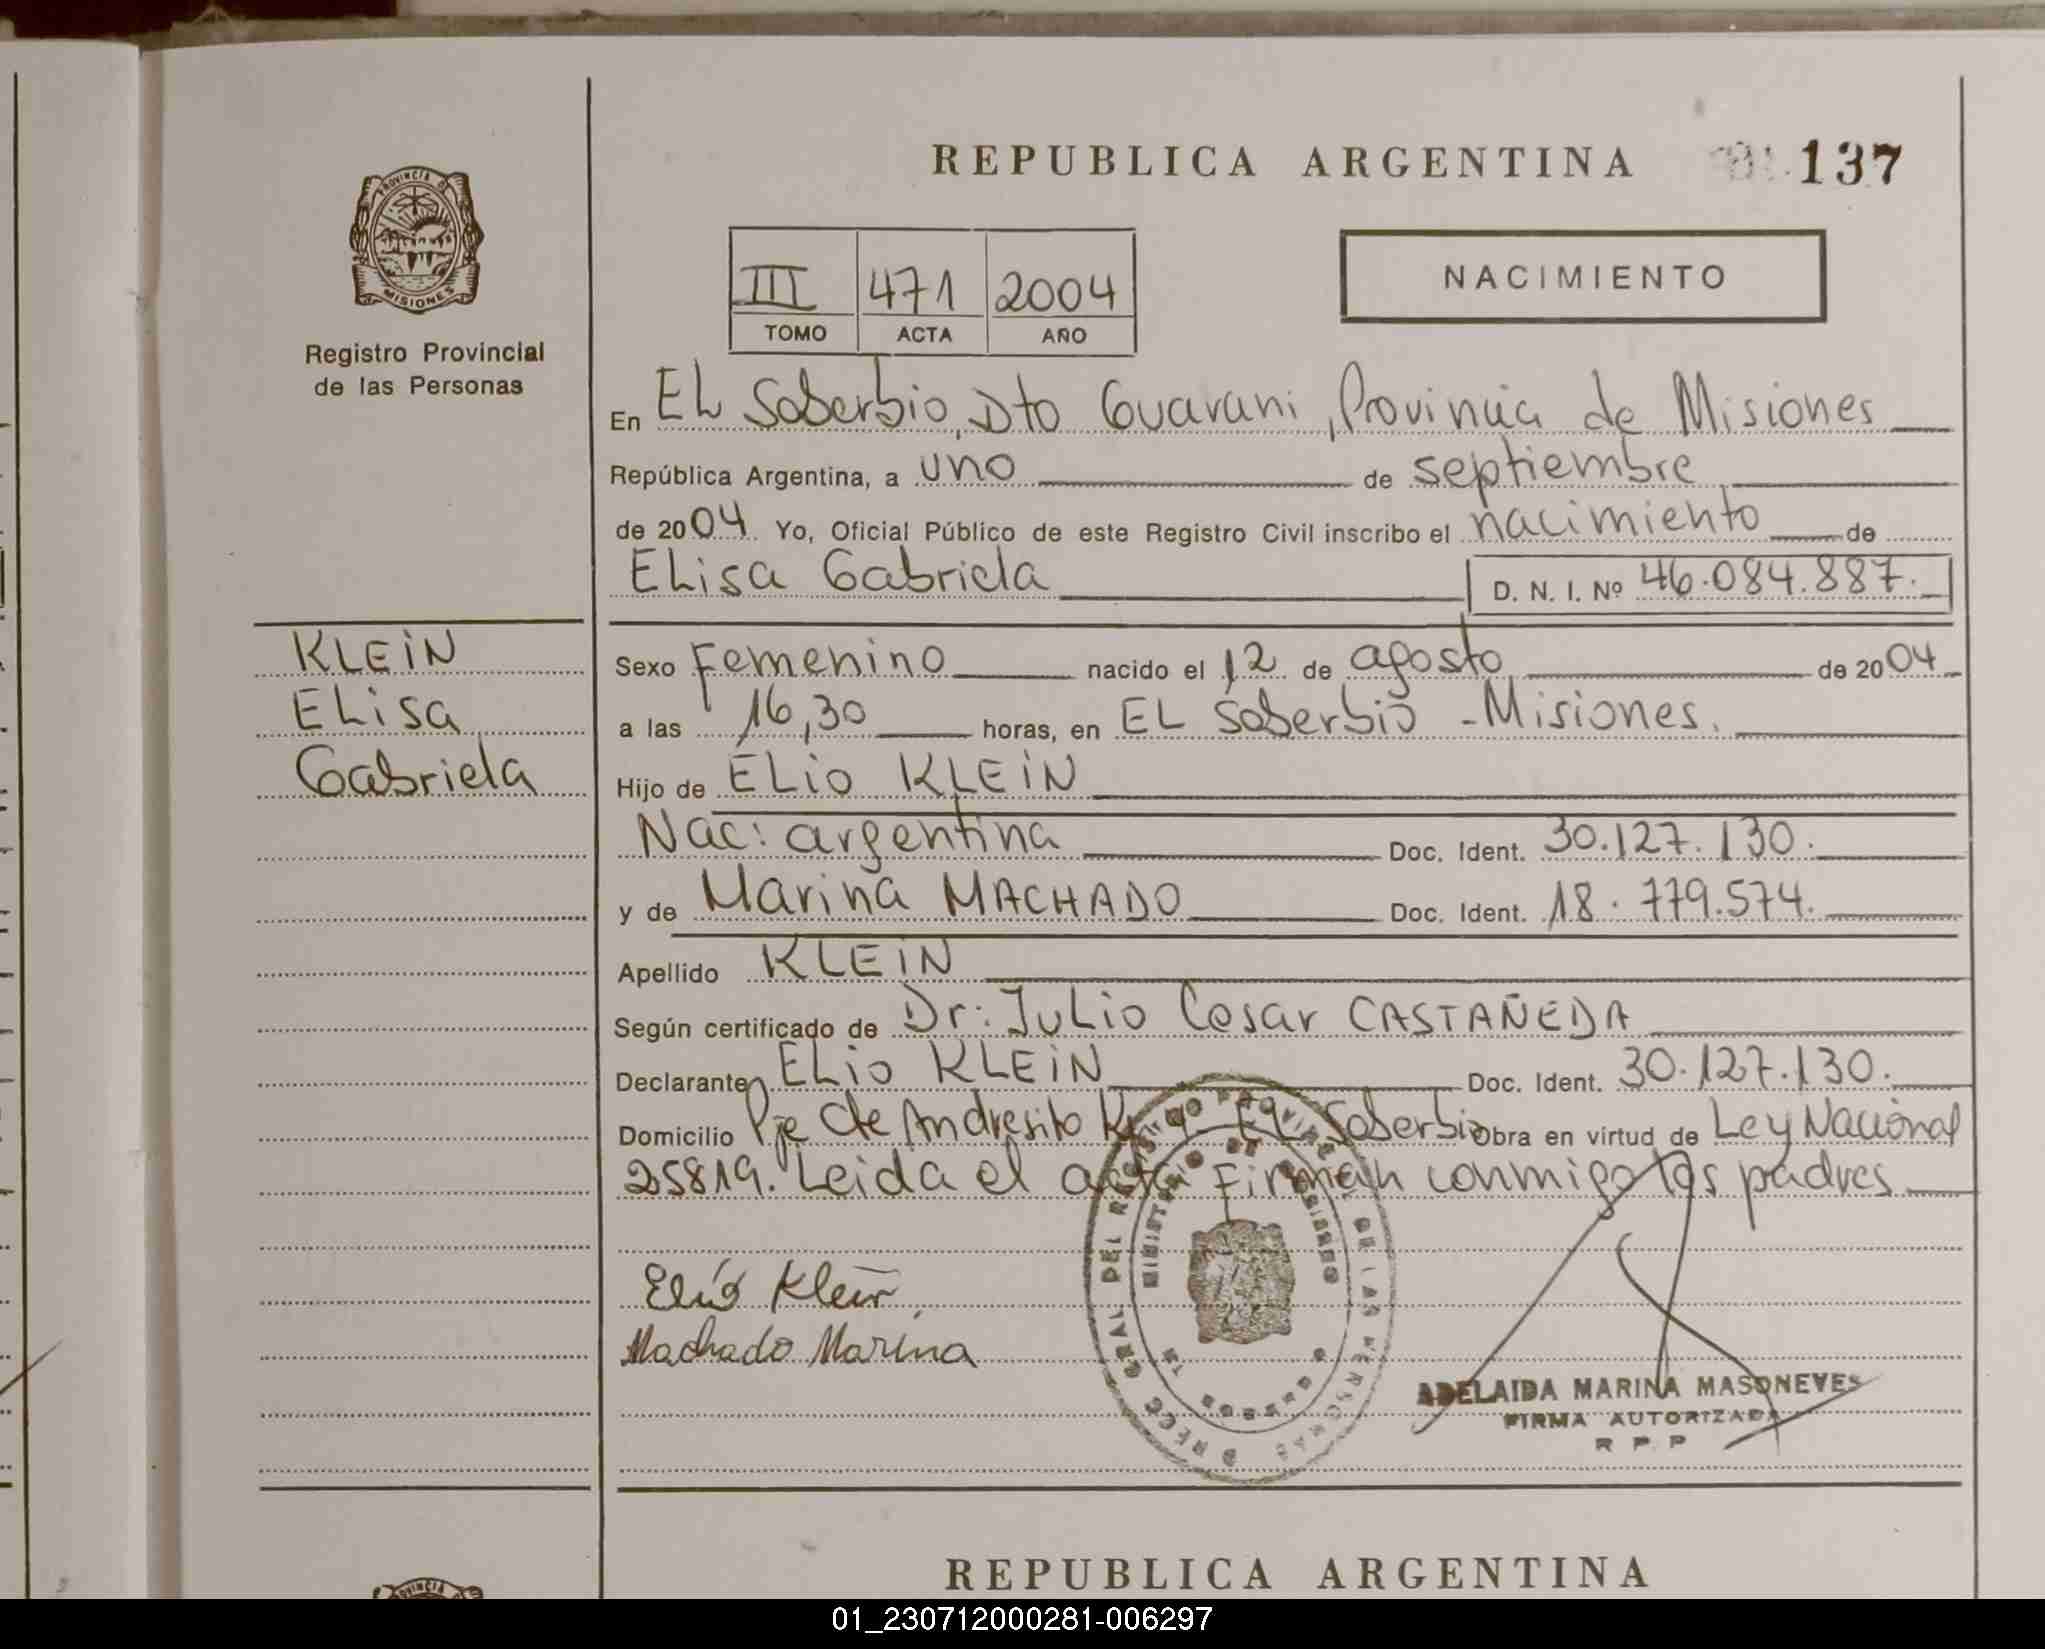 REPUBLICA ARGENTINA 137
PROVINCIA DE
MISIONES
Registro Provincial
de las Personas
NACIMIENTO
III 471 2004
TOMO ACTA AÑO
En EL Soberbio, Dto Guarani, Provincia de Misiones
República Argentina, a uno de septiembre
de 2004 Yo, Oficial Público de este Registro Civil inscribo el nacimiento de
ELisa Gabriela D. N. I. Nº 46.084.887.
KLEIN
ELisa
Gabriela
Sexo Femenino nacido el 12 de agosto de 2004
a las 16,30 horas, en EL Soberbio - Misiones.
Hijo de ELio KLEIN
Nac: argentina Doc. Ident. 30.127.130.
y de Marina MACHADO Doc. Ident. 18.779.574.
Apellido KLEIN
Según certificado de Dr: JuLio Cesar CASTAÑEDA
Declarante ELio KLEIN Doc. Ident. 30.127.130.
Domicilio Pje Cte Andresito EL Soberbio Obra en virtud de Ley Nacional
25819. Leida el acta Firman conmigo los padres
Elio Klein
Machado Marina
ADELAIDA MARINA MASONEVES
FIRMA AUTORIZADA
R P P
REPUBLICA ARGENTINA
PROVINCIA
01_230712000281-006297